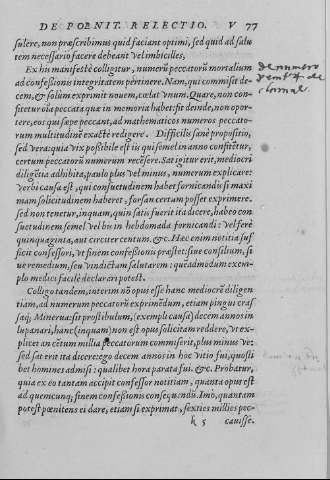 DE POENIT. RELECTIO. V 77
sulere, non præscribimus quid faciant optimi, sed quid ad salu
tem necessario facere debeant vel imbicilles,
Ex his manifestè colligitur, numerũ peccatorũ mortalium
ad confeßionis integritatem pertinere. Nam, qui commisit de-
cem, & solùm exprimit nouem, cælat vnum. Quare, non con-
fitetur oĩa peccata quæ in memoria habet: fit deinde, non opor-
tere, eos qui sæpe peccant, ad mathematicos numeros peccato-
rum multitudinẽ exactè redigere. Difficilis sanè propositio,
sed vera: quia vix poßibile est iis qui semel in anno confitẽtur,
certum peccatorũ numerum recẽsere. Sat igitur erit, mediocri
diligẽtia adhibita, paulo plus vel minus, numerum explicare:
verbi causa est, qui consuetudinem habet fornicandi si maxi
mam solicitudinem haberet, forsan certum posset exprimere.
sed non tenetur, inquam, quin satis fuerit ita dicere, habeo con
suetudinem semel vel bis in hebdomada fornicandi: vel ferè
quinquaginta, aut circiter centum. &c. Hæc enim notitia suf
ficit confessori, vt finem confeßionis præstet: siue consilium, si
ue remedium, seu vindictam salutarem: quẽadmodum exem-
plo medici facilè declarari potest.
Colligo tandem, interim nõ opus esse hanc mediocrẽ diligen
tiam, ad numerum peccatorum exprimẽdum, etiam pingui cras
saq; Minerua: sit prostibulum, (exempli causa) decem annos in
lupanari, hanc (inquam) non est opus solicitam reddere, vt ex-
plicet an cẽtum millia peccatorum commiserit, plus minus ve:
sed sat erit ita dicere: ego decem annos in hoc vitio fui, quosli
bet homines admisi: qualibet hora parata fui. &c. Probatur,
quia ex eo tantam accipit confessor notitiam, quanta opus est
ad quemcunq; finem confeßionis consequẽndũ. Imò, quantam
potest pœnitens ei dare, etiam si exprimat, sexties millies pec-
k 5 cauisse.
de numero